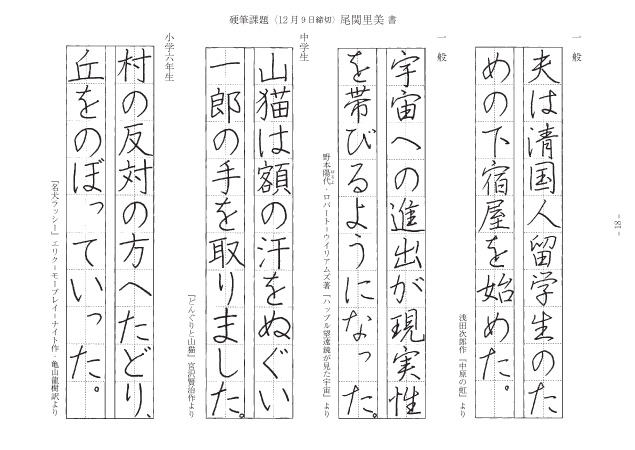 硬筆課題（12月9日締切）尾関里美 書
一般
夫は清国人留学生のた
めの下宿屋を始めた。
浅田次郎作『中原の虹』より
一般
宇宙への進出が現実性
を帯びるようになった。
野本陽代・ロバート＝ウイリアムズ著『ハッブル望遠鏡が見た宇宙』より
中学生
山猫は額の汗をぬぐい
一郎の手を取りました。
『どんぐりと山猫』宮沢賢治作より
小学六年生
村の反対の方へたどり、
丘をのぼっていった。
『名犬ラッシー』エリク＝モーブレイ＝ナイト作 亀山龍樹訳より